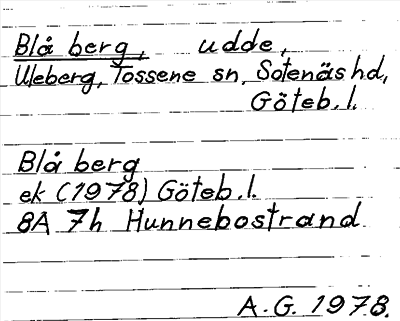 Blå berg, udde,
Uleberg, Tossene sn, Sotenäs hd,
Göteb. l.
Blå berg
ek (1978) Göteb. l.
8A 7h Hunnebostrand
A. G. 1978.